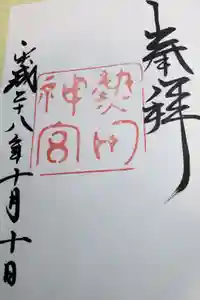 奉拝
熱田
神宮
平成二十八年十月十日